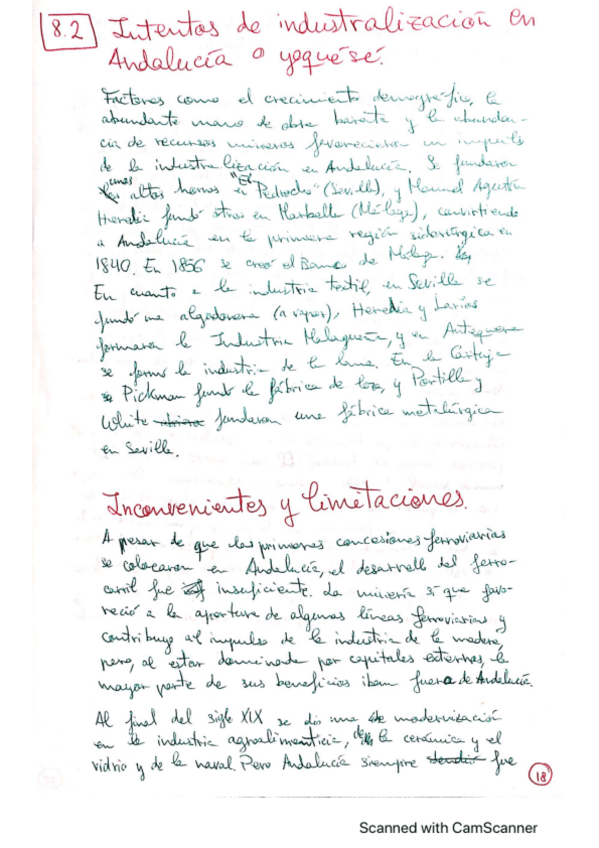 8.2 Intentos de industralización en
Andalucía o yoquésé.
Factores como el crecimiento demográfico, la
abundante mano de obra barata y la abundan-
cia de recursos mineros favorecieron un impulso
de la industralización en Andalucía. Se fundaron
unos altos hornos en "El Pedroche" (Sevilla), y Manuel Agustín
Heredia fundó otros en Marbella (Málaga), convirtiendo
a Andalucía en la primera región siderúrgica en
1840. En 1856 se creó el Banco de Málaga.
En cuanto a la industria textil, en Sevilla se
fundó una algodonera (a vapor), Heredia y Larios
formaron la Industria Malagueña, y en Antequera
se formó la industria de la lana. En la Cartuja
Pickman fundó la fábrica de loza, y Portilla y
White fundaron una fábrica metalúrgica
en Sevilla.
Inconvenientes y limitaciones.
A pesar de que las primeras concesiones ferroviarias
se colocaron en Andalucía, el desarrollo del ferro-
carril fue insuficiente. La minería sí que favo-
reció a la apertura de algunas líneas ferroviarias y
contribuyo al impulso de la industria de la madera,
pero, al estar dominada por capitales externos, la
mayor parte de sus beneficios iban fuera de Andalucía.
Al final del siglo XIX se dio una modernización
en la industria agroalimenticia, de la cerámica y el
vidrio y de la naval. Pero Andalucía siempre fue
18
Scanned with CamScanner